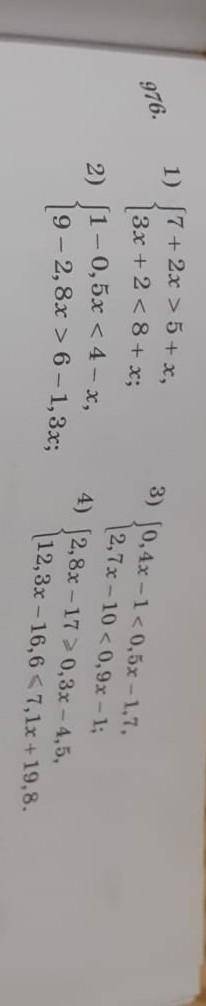 976.
1) { 7 + 2x > 5 + x,
3x + 2 < 8 + x;
2) { 1 − 0,5x < 4 − x,
9 − 2,8x > 6 − 1,3x;
3) { 0,4x − 1 < 0,5x − 1,7,
2,7x − 10 < 0,9x − 1;
4) { 2,8x − 17 ⩾ 0,3x − 4,5,
12,3x − 16,6 ⩽ 7,1x + 19,8.